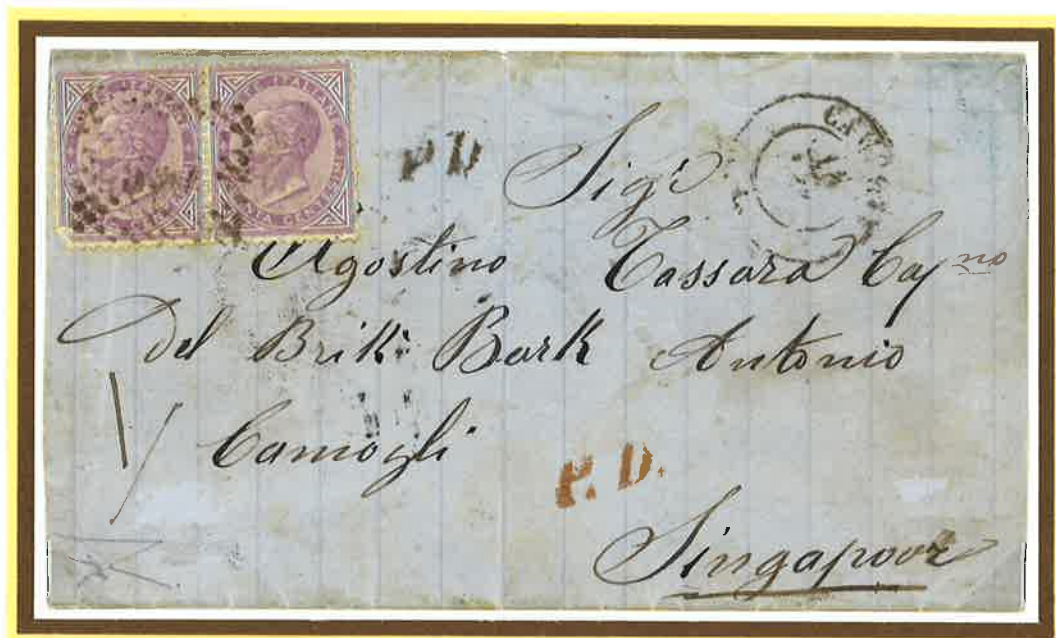 POSTE ITALIANE
P. D.
Sigr.
Agostino Cassara Capno
Del Brik: Bark Antonio
Camogli
P. D.
Singapoor